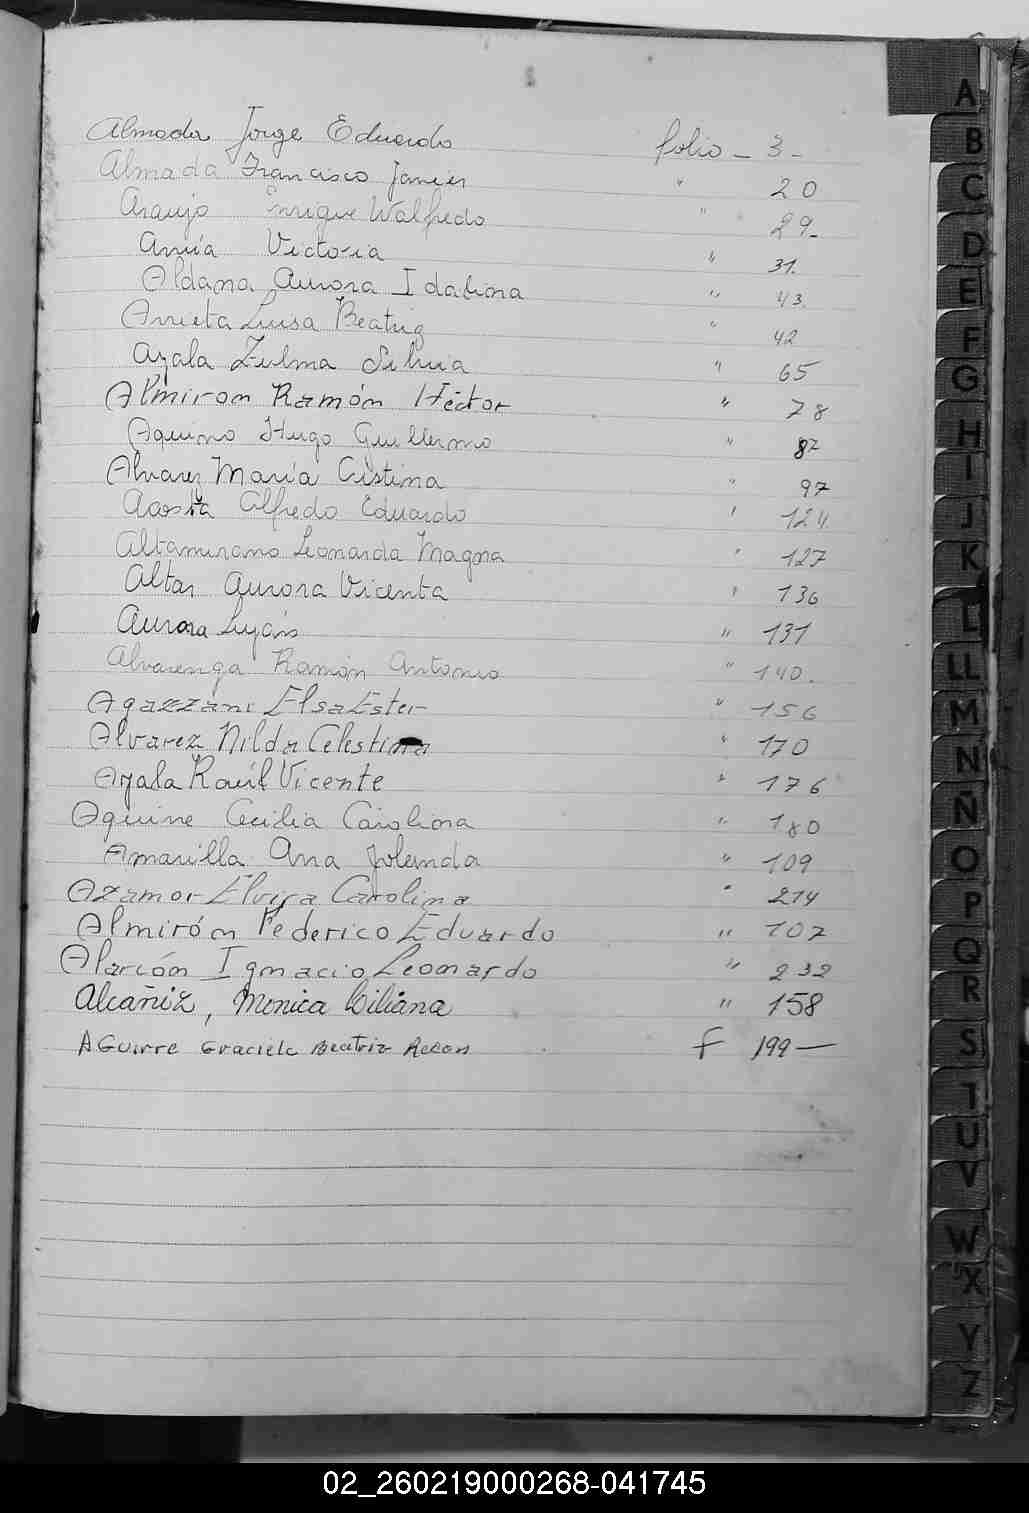 Almada Jorge Eduardo folio - 3 -
Almada Francisco Javier " 20
Araujo Enrique Walfredo " 29-
Victoria " 31.
Aldana Aurora Idalina " 43.
Arrieta Luisa Beatriz " 42
Ayala Zulma Silvia " 65
Almiron Ramón Héctor " 78
Aquino Hugo Guillermo " 87
Alvarez María Cistina " 97
Acosta Alfredo Eduardo " 124.
Altamirano Leonarda Magna " 127
Altar Aurora Vicenta " 136
Aurora Luján " 131
Alvarenga Ramón Antonio " 140.
Agazzani Elsa Ester " 156
Alvarez Nilda Celestina " 170
Ayala Raúl Vicente " 176
Aquine Cecilia Carolina " 180
Amarilla Ana Jolanda " 109
Azamor Elvira Carolina " 214
Almirón Federico Eduardo " 107
Alarcón Ignacio Leonardo " 232
Alcañiz, Monica Liliana " 158
Aguirre Graciela Beatriz f 199 —
A
B
C
D
E
F
G
H
I
J
K
L
LL
M
N
Ñ
O
P
Q
R
S
T
U
V
W
X
Y
Z
02_260219000268-041745